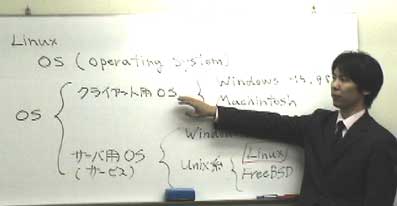 Linux
OS (Operating System)
クライアント用OS
Windows
Macintosh
OS
サーバ用OS
(サービス)
Window
Unix系
Linux
FreeBSD